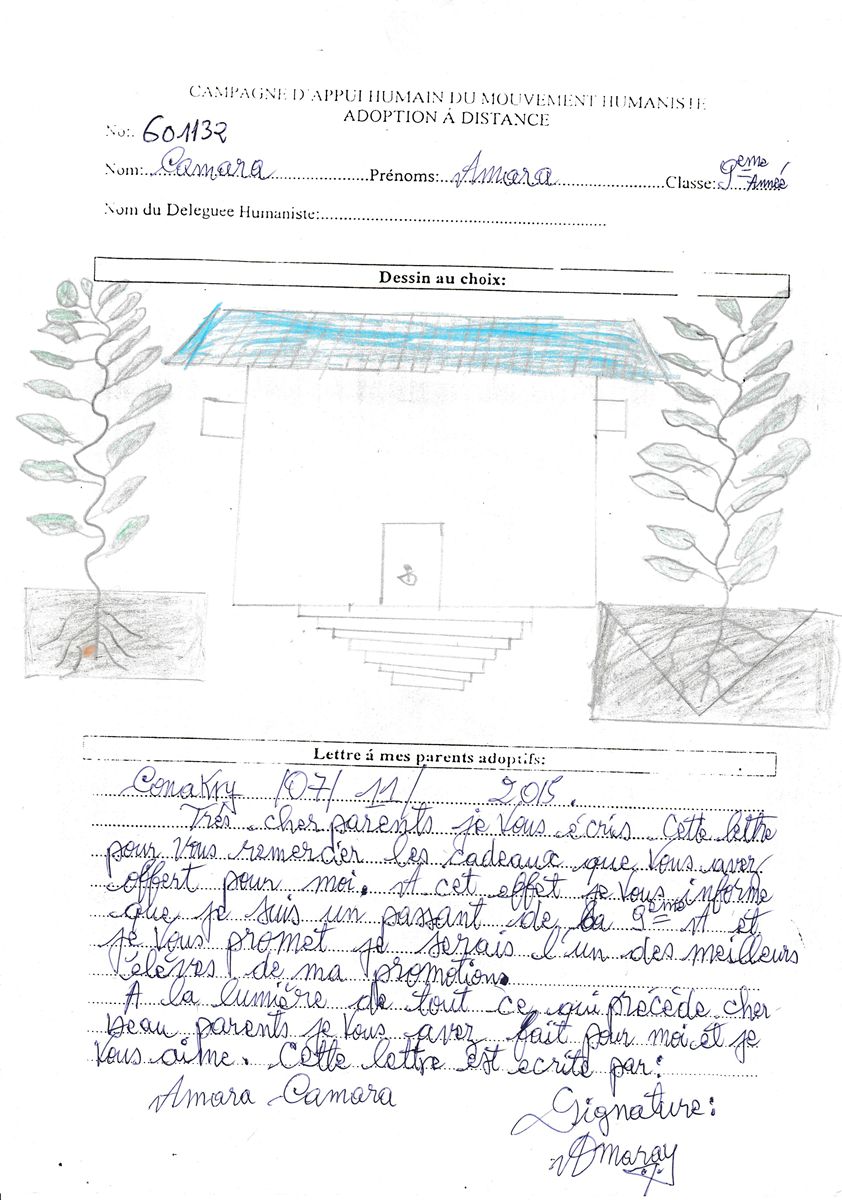 CAMPAGNE D'APPUI HUMAIN DU MOUVEMENT HUMANISTE
ADOPTION À DISTANCE
No:. 601132
Nom: Camara Prénoms: Amara Classe: 9eme Année
Nom du Deleguee Humaniste:
Dessin au choix:
Lettre á mes parents adoptifs:
Conakry /07/ 11/ 2015.
Très cher parents je vous écris cette lettre
pour vous remercier les cadeaux que vous avez
offert pour moi. A cet effet je vous informe
que je suis un passant de la 9eme A et
je vous promet je serais l'un des meilleurs
élèves de ma promotion.
A la lumière de tout ce qui précède cher
beau parents je vous avez fait pour moi et je
vous aime. Cette lettre est ecrite par:
Amara Camara Signature:
Amaray